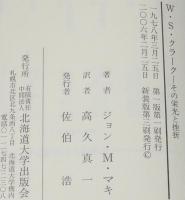 W・S・クラーク―その栄光と挫折
一九七八年三月二五日 第一版第一刷発行
二〇〇六年二月二五日 新装版第三刷発行©
著者 ジョン・M・マキ
訳者 高久真一
発行者 佐伯浩
発行所 有限責任中間法人 北海道大学出版会
札幌市北区北九条西八丁目 北海道大学構内